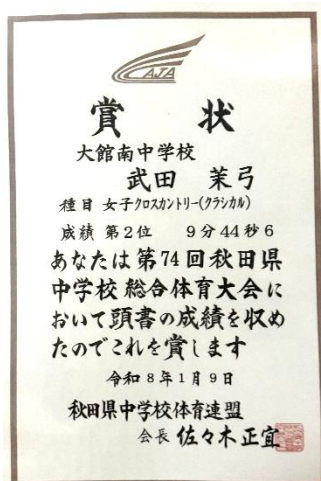 AJA
賞状
大館南中学校
武田 茉弓
種目 女子クロスカントリー(クラシカル)
成績 第2位 9分44秒6
あなたは第74回秋田県
中学校総合体育大会に
おいて頭書の成績を収め
たのでこれを賞します
令和8年1月9日
秋田県中学校体育連盟
会長 佐々木正宜